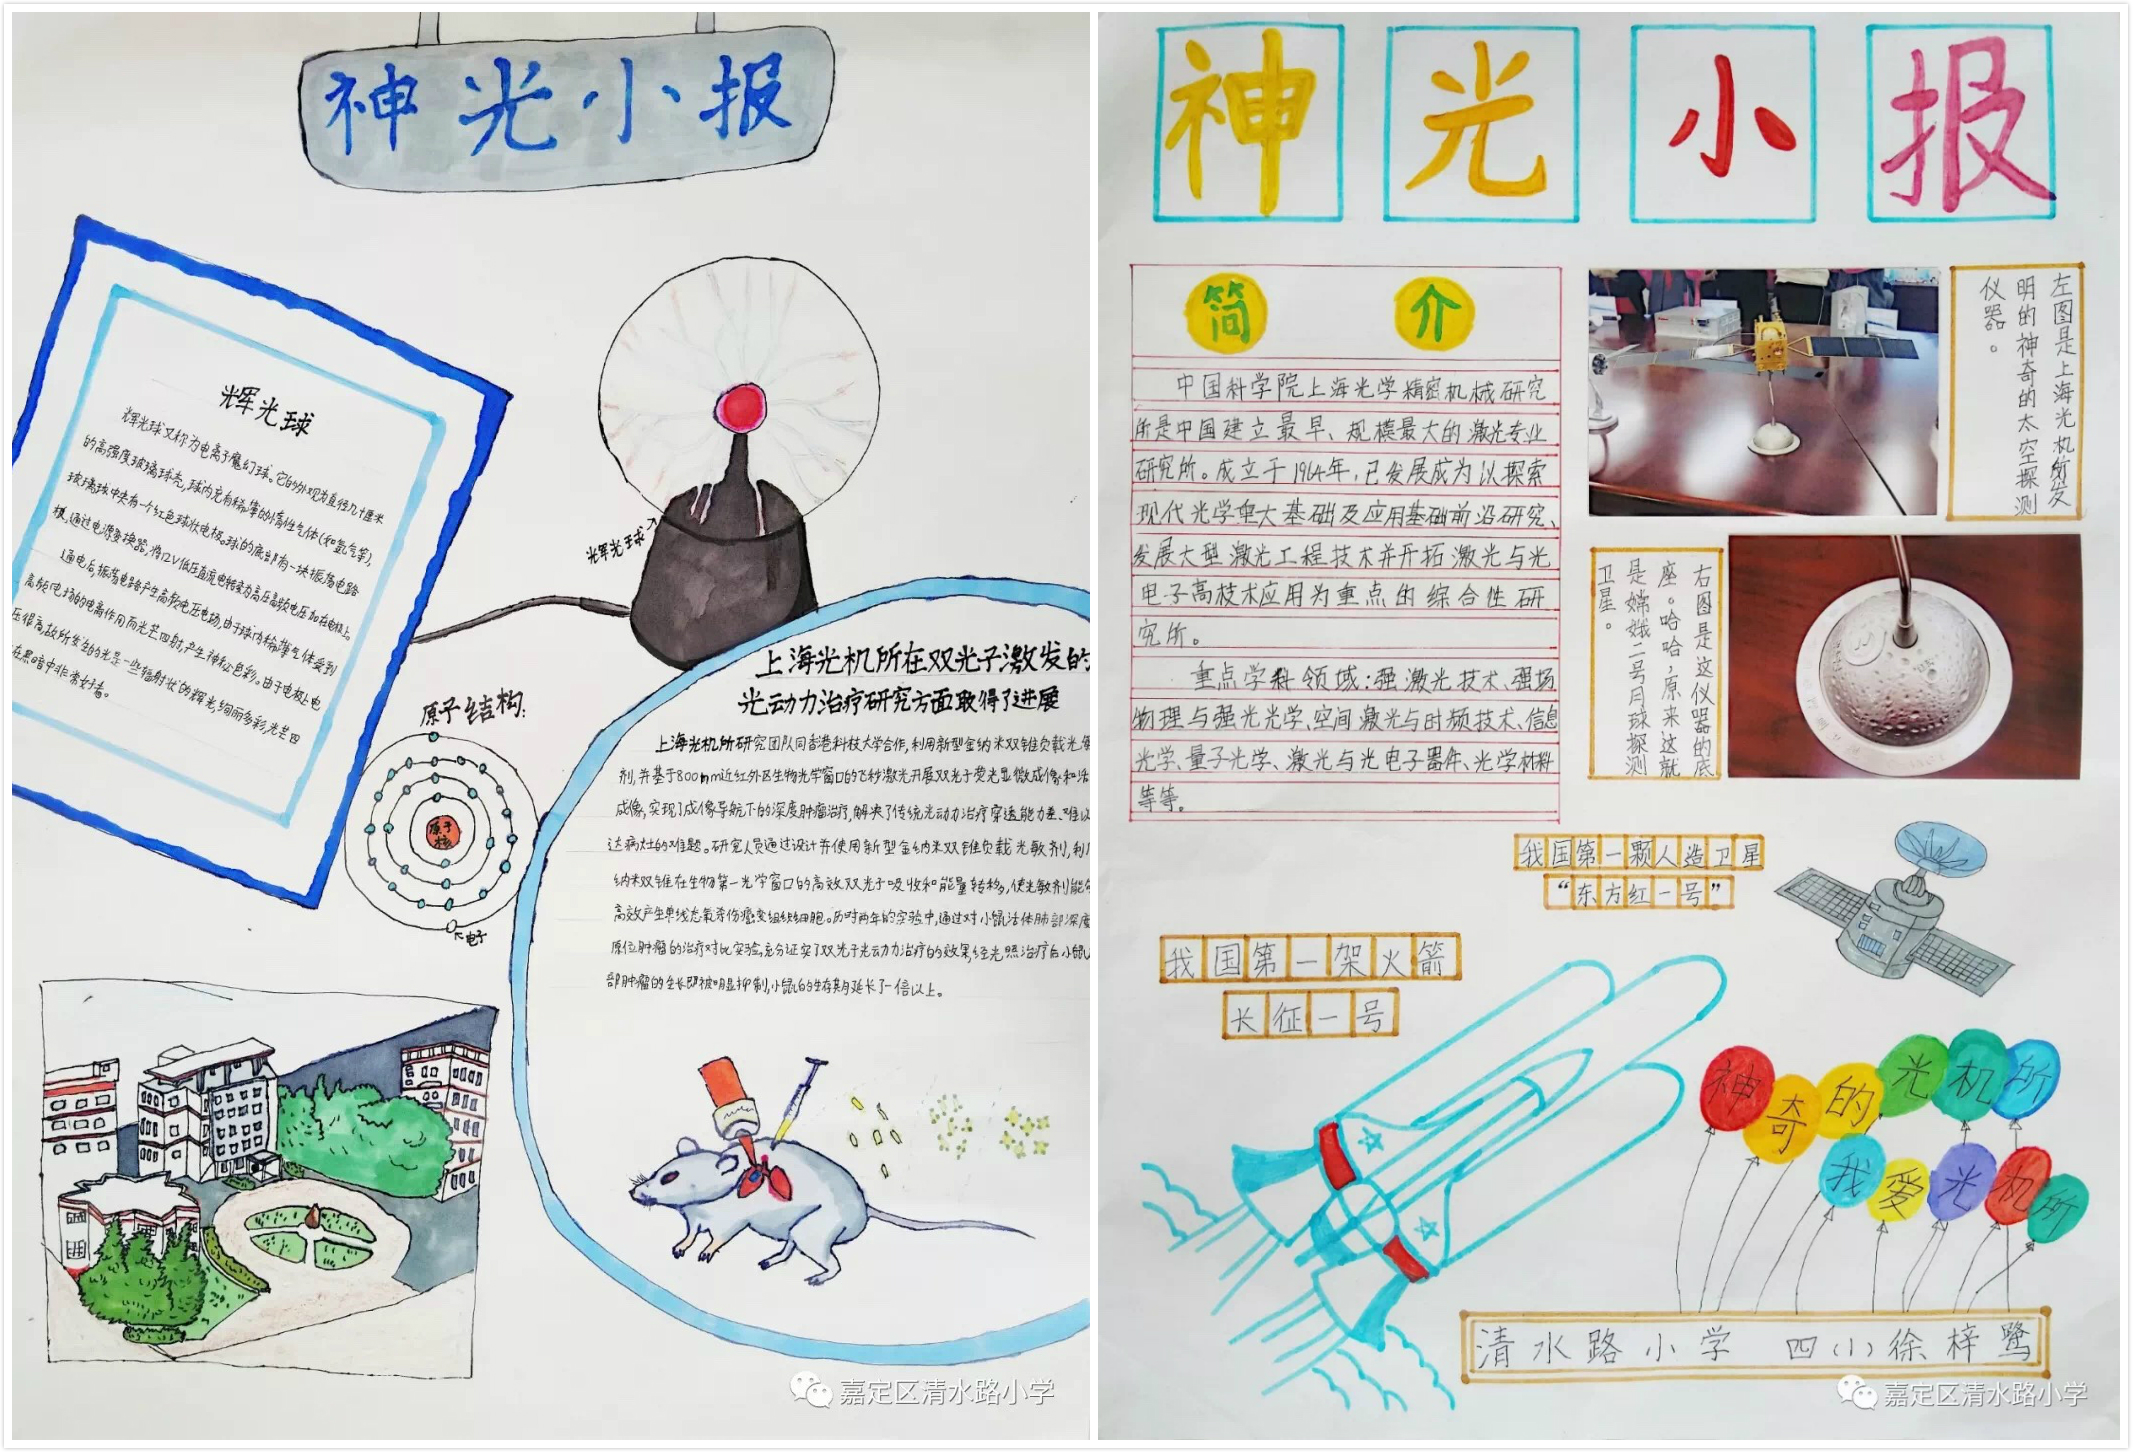 神光小报
辉光球
辉光球又称为电离子魔幻球。它的外观为直径几十厘米
的高强度玻璃球壳,球内充有稀薄的惰性气体(和氩气等),
玻璃球中央有一个红色球状电极。球的底部有一块振荡电路
板,通过电源变换器,将12V低压直流电转变为高压高频电压加在电极上。
通电后,振荡电路产生高频电压电场,由于球内稀薄气体受到
高频电场的电离作用而光芒四射,产生神秘色彩。由于电极上电
压很高,故所发生的光是一些辐射状的辉光,绚丽多彩,光芒四
在黑暗中非常好看。
辉光球
原子结构:
原子
核
电子
上海光机所在双光子激发的
光动力治疗研究方面取得了进展
上海光机所研究团队同香港科技大学合作,利用新型金纳米双锥负载光
剂,并基于800nm近红外区生物光学窗口的飞秒激光开展双光子荧光显微成像和活
成像,实现了成像导航下的深度肿瘤治疗,解决了传统光动力治疗穿透能力差、难以
达病灶的难题。研究人员通过设计并使用新型金纳米双锥负载光敏剂,利
纳米双锥在生物第一光学窗口的高效双光子吸收和能量转移,使光敏剂能
高效产生单线态氧杀伤癌变组织细胞。历时两年的实验中,通过对小鼠活体肺部深度
原位肿瘤的治疗对比实验,充分证实了双光子光动力治疗的效果,经光照治疗后小鼠
部肿瘤的生长即被明显抑制,小鼠的生存期延长了一倍以上。
嘉定区清水路小学
神光小报
简介
中国科学院上海光学精密机械研究
所是中国建立最早、规模最大的激光专业
研究所。成立于1964年,已发展成为以探索
现代光学重大基础及应用基础前沿研究、
发展大型激光工程技术并开拓激光与光
电子高技术应用为重点的综合性研
究所。
重点学科领域:强激光技术、强场
物理与强光光学、空间激光与时频技术、信息
光学、量子光学、激光与光电子器件、光学材料
等等。
左图是上海光机所发
明的神奇的太空探测
仪器。
右图是这仪器的底
座。哈哈,原来这就
是嫦娥二号月球探测
卫星。
我国第一颗人造卫星
“东方红一号”
我国第一架火箭
长征一号
神奇的光机所
我爱光机所
清水路小学 四(1)徐梓鹭
嘉定区清水路小学